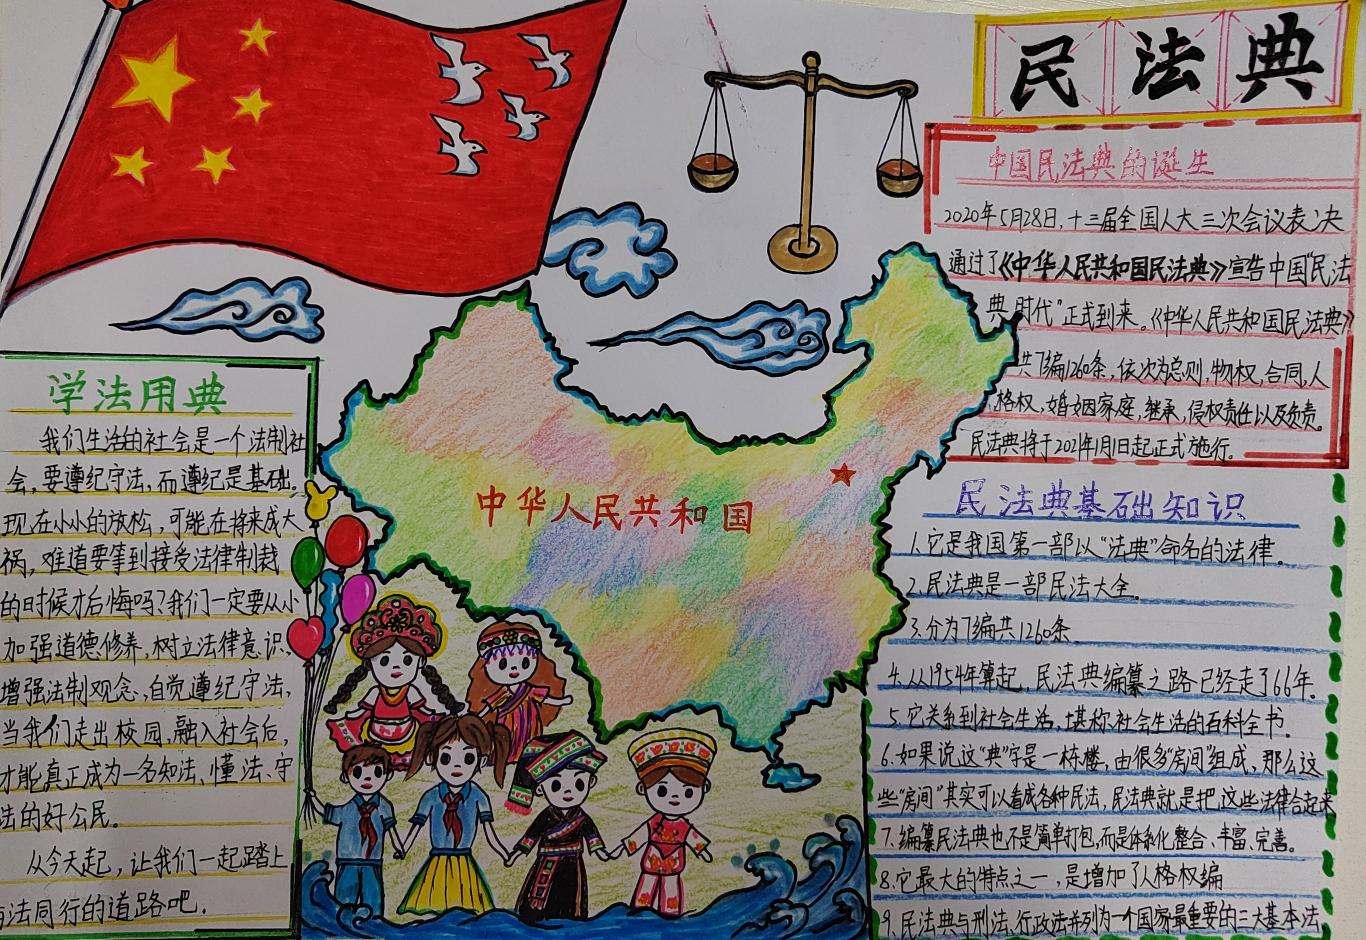 民法典
中国民法典的诞生
2020年5月28日,十三届全国人大三次会议表决
通过了《中华人民共和国民法典》宣告中国"民法
典时代"正式到来。《中华人民共和国民法典》
共7编1260条,依次为总则,物权,合同,人
格权,婚姻家庭,继承,侵权责任以及负责。
民法典将于2021年1月1日起正式施行。
学法用典
我们生活的社会是一个法制社
会,要遵纪守法,而遵纪是基础。
现在小小的放松,可能在将来成大
祸,难道要等到接受法律制裁
的时候才后悔吗?我们一定要从小
加强道德修养,树立法律意识、
增强法制观念、自觉遵纪守法,
当我们走出校园,融入社会后,
才能真正成为一名知法、懂法、守
法的好公民。
从今天起,让我们一起踏上
法同行的道路吧.
中华人民共和国
民法典基础知识
1.它是我国第一部以"法典"命名的法律。
2.民法典是一部民法大全。
3.分为7编共1260条.
4.从1954年算起,民法典编纂之路已经走了66年.
5.它关系到社会生活,堪称社会生活的百科全书.
6.如果说这"典"字是一栋楼,由很多"房间"组成,那么这
些"房间"其实可以看成各种民法,民法典就是把这些法律合起来
7.编纂民法典也不是简单打包,而是体系化整合、丰富、完善。
8.它最大的特点之一,是增加了人格权编
9.民法典与刑法、行政法并列为一个国家最重要的三大基本法